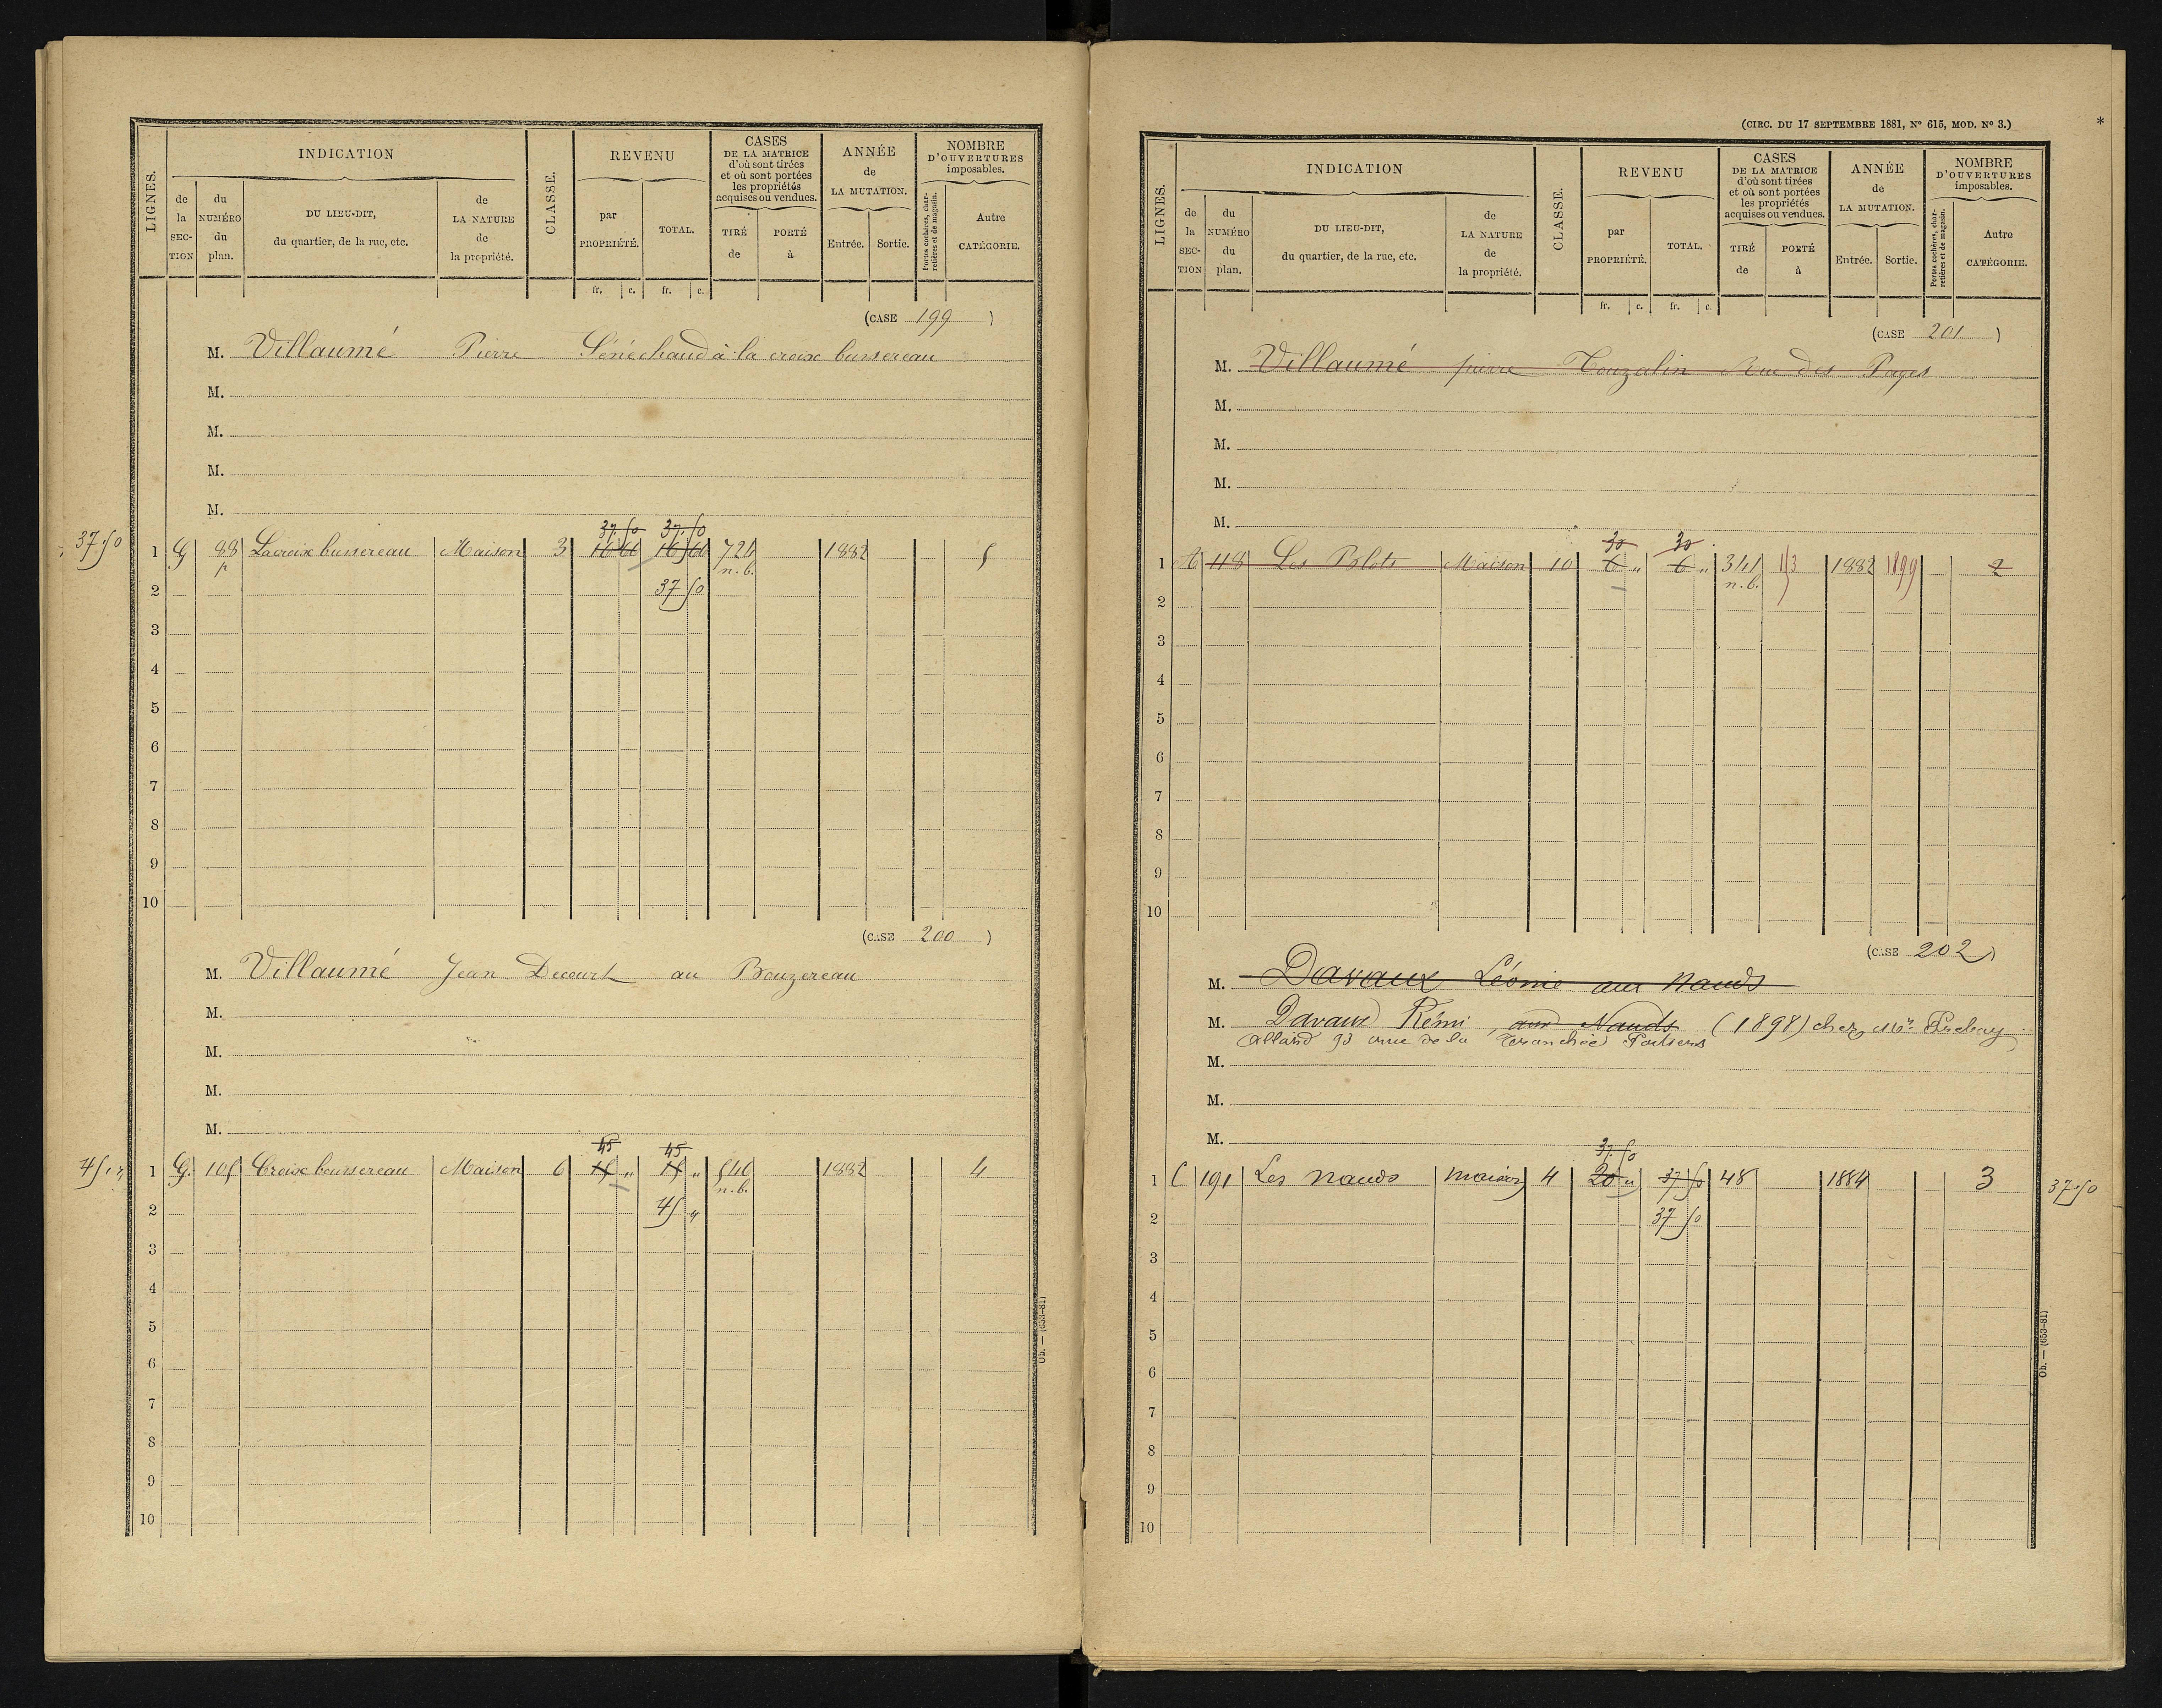 LIGNES.
INDICATION
de la SECTION
du NUMÉRO du plan.
DU LIEU-DIT, du quartier, de la rue, etc.
de LA NATURE de la propriété.
CLASSE.
REVENU
par PROPRIÉTÉ.
TOTAL.
fr. c. fr. c.
CASES DE LA MATRICE d'où sont tirées et où sont portées les propriétés acquises ou vendues.
TIRÉ de
PORTÉ à
ANNÉE de LA MUTATION.
Entrée. Sortie.
NOMBRE D'OUVERTURES imposables.
Portes cochères, charretières et de magasin.
Autre CATÉGORIE.
(CASE 199)
M. Villaumé Pierre Sénéchaud à la croix bussereau
M.
M.
M.
M.
37.50 37.50
37.50 1 G 88 Lacroix bussereau Maison 3 16 60 16 60 724 1882 5
p n.b.
2 37 50
3
4
5
6
7
8
9
10
(CASE 200)
M. Villaumé Jean Decourt au Bouzereau
M.
M.
M.
M.
45 45
45 1 G. 105 Croix boussereau Maison 6 15 " 15 " 540 1882 4
n.b.
2 45 "
3
4
5
6
7
8
9
10
Ob. — (653-81)
(CIRC. DU 17 SEPTEMBRE 1881, N° 615, MOD. N° 3.)
*
LIGNES.
INDICATION
de la SECTION
du NUMÉRO du plan.
DU LIEU-DIT, du quartier, de la rue, etc.
de LA NATURE de la propriété.
CLASSE.
REVENU
par PROPRIÉTÉ.
TOTAL.
fr. c. fr. c.
CASES DE LA MATRICE d'où sont tirées et où sont portées les propriétés acquises ou vendues.
TIRÉ de
PORTÉ à
ANNÉE de LA MUTATION.
Entrée. Sortie.
NOMBRE D'OUVERTURES imposables.
Portes cochères, charretières et de magasin.
Autre CATÉGORIE.
(CASE 201)
M. Villaumé pierre Touzalin Rue des Pages
M.
M.
M.
M.
30 30
1 118 Les Blots Maison 10 6 " 6 " 341 153 1882 1899 2
n.b.
2
3
4
5
6
7
8
9
10
(CASE 202)
M. Davaux Léonie aux Nauds
M. Davaux Rémi, aux Nauds (1898) chez Mr.
allard 93 rue de la Tranchée Poitiers
M.
M.
M.
37.50
1 C 191 Les nauds maison 4 20 " 37 50 48 1884 3 37.50
2 37 50
3
4
5
6
7
8
9
10
Ob. — (653-81)